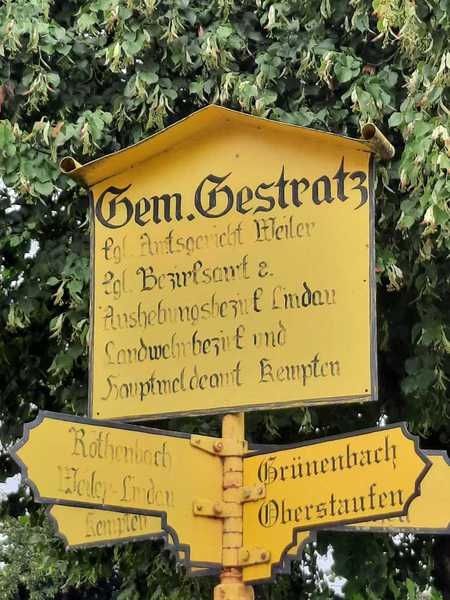 Gem. Gestratz
kgl. Amtsgericht Weiler
kgl. Bezirksamt &.
Aushebungsbezirk Lindau
Landwehrbezirk und
Hauptmeldeamt Kempten
Röthenbach
Weiler-Lindau
Kempten
Grünenbach
Oberstaufen